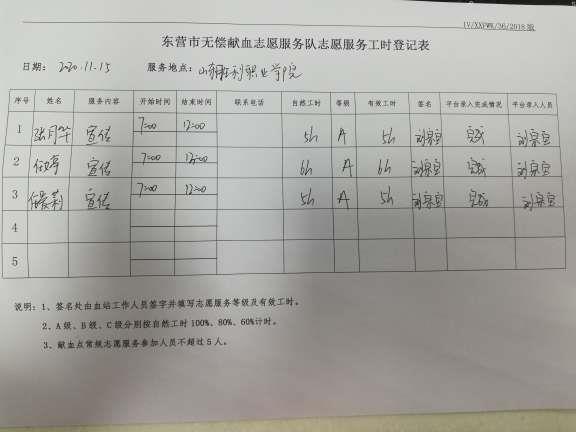 IV/XXPWK/36/2018 版
东营市无偿献血志愿服务队志愿服务工时登记表
日期： 2020.11.15 服务地点：山东胜利职业学院
序号 姓名 服务内容 开始时间 结束时间 联系电话 自然工时 等级 有效工时 签名 平台录入完成情况 平台录入人员
1 张月华 宣传 7:00 12:00 5h A 5h 完成
2 宣传 7:00 6h A 6h 完成
3 宣传 7:00 12:00 5h A 5h 完成
4
5
说明：1、签名处由血站工作人员签字并填写志愿服务等级及有效工时。
2、A 级、B 级、C 级分别按自然工时 100%、80%、60%计时。
3、献血点常规志愿服务参加人员不超过 5 人。